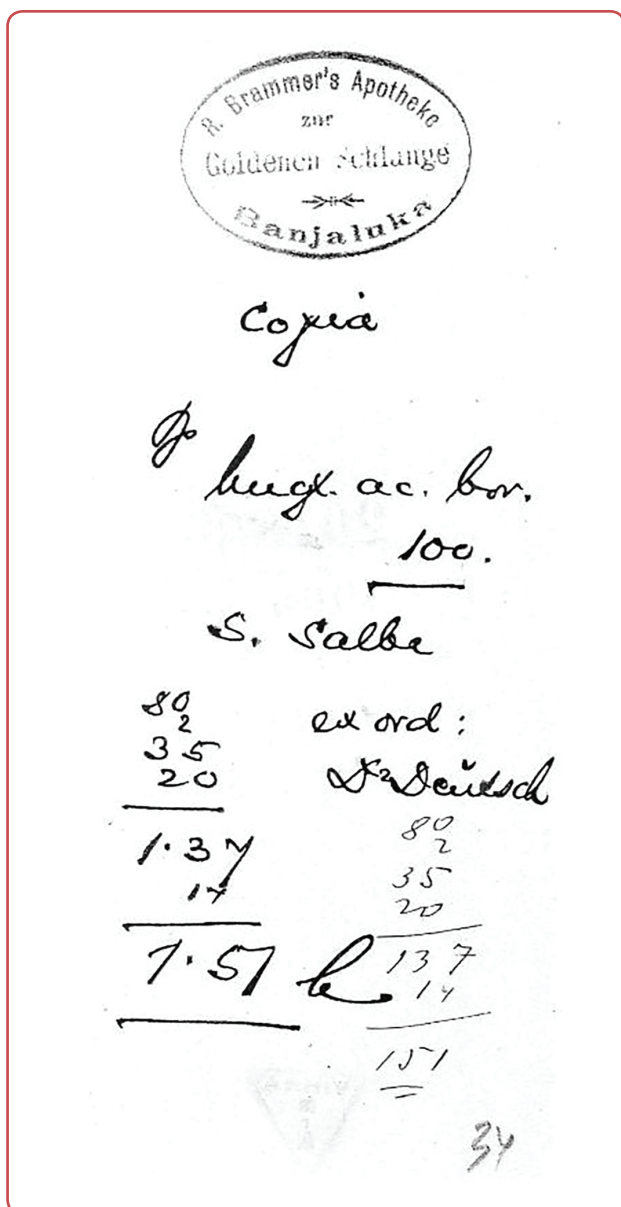 R. Brammer's Apotheke
zur
Goldenen Schlange
Banjaluka
Copia
Rp
Ungt. ac. bor.
100.
S. Salbe
80
2
35
20
1.37
14
1.51
ex ord:
Dr Deutsch
80
2
35
20
137
14
151
34